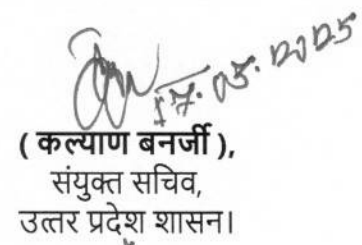 17.03.2025
( कल्याण बनर्जी ),
संयुक्त सचिव,
उत्तर प्रदेश शासन।